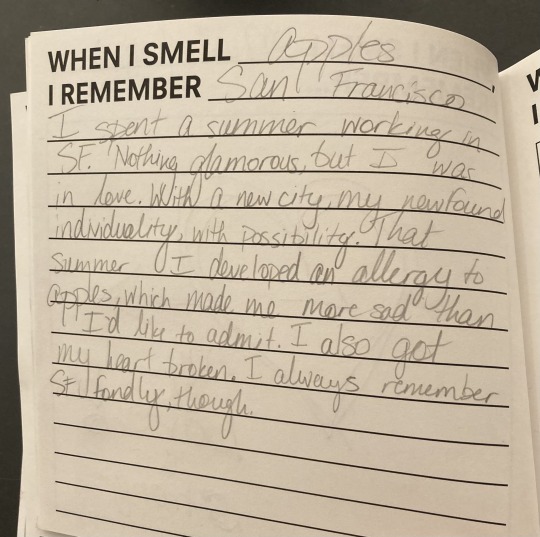 WHEN I SMELL apples,
I REMEMBER San Francisco
I spent a summer working in
SF. Nothing glamorous, but I was
in love. With a new city, my newfound
individuality, with possibility. That
summer I developed an allergy to
apples, which made me more sad than
I'd like to admit. I also got
my heart broken. I always remember
SF fondly, though.